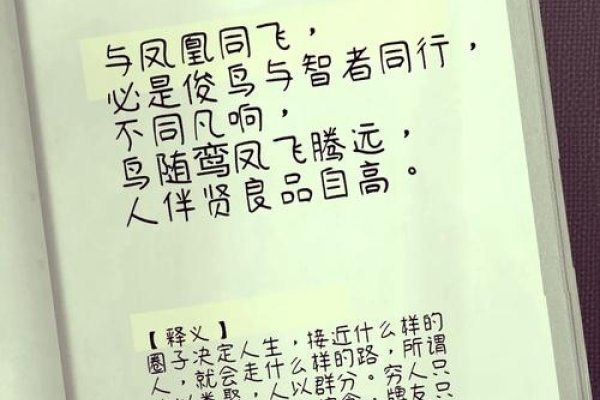 与凤凰同飞，
必是俊鸟与智者同行，
不同凡响，
鸟随鸾凤飞腾远，
人伴贤良品自高。
【释义】
圈子决定人生，接近什么样的
人，就会走什么样的路，所谓
人以群分。穷人只
牌友只